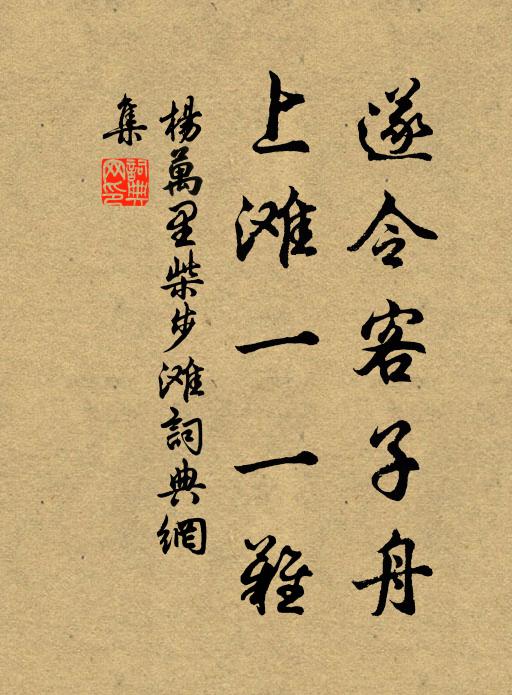 遂令客子舟
上滩一一難
楊萬里柴步滩詞典網
集
詞典网印